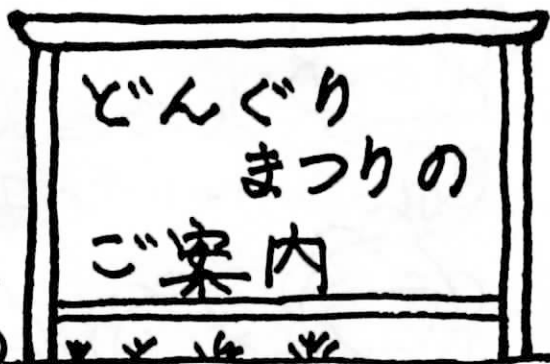 どんぐり
まつりの
ご案内